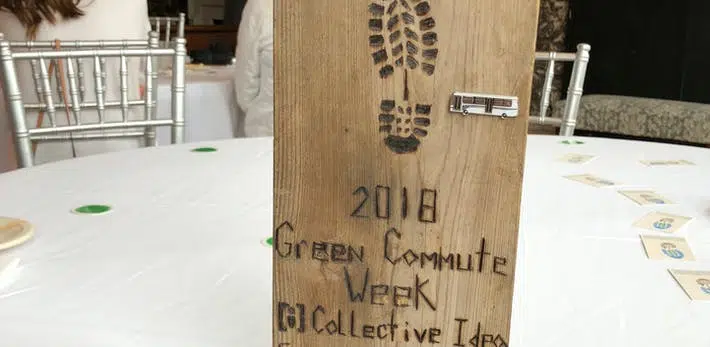 2018
Green Commute
Week
[i] Collective Idea